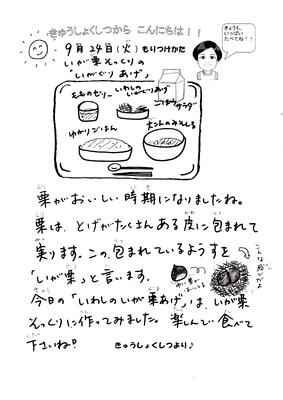 きゅうしょくしつから こんにちは！！
きょうも、
いっぱい
たべてね！！
9月24日(火) もりつけかた
いが栗そっくりの
「いがぐりあげ」
いわしの
いがぐりあげ
ごぼうサラダ
ゆかりごはん
大こんのみそしる
栗がおいしい時期になりましたね。
栗は、とげがたくさんある皮に包まれて
実ります。この包まれているようすを
「いが栗」と言います。
こんな感じだよ
今日の「いわしのいが栗あげ」は、いが栗
そっくりに作ってみました。楽しんで食べて
下さいね？
きゅうしょくしつより♪